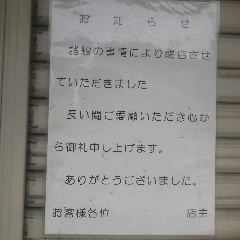 お知らせ
諸般の事情により閉店させ
ていただきました
長い間ご愛顧いただき心か
ら御礼申し上げます。
ありがとうございました。
お客様各位 店主